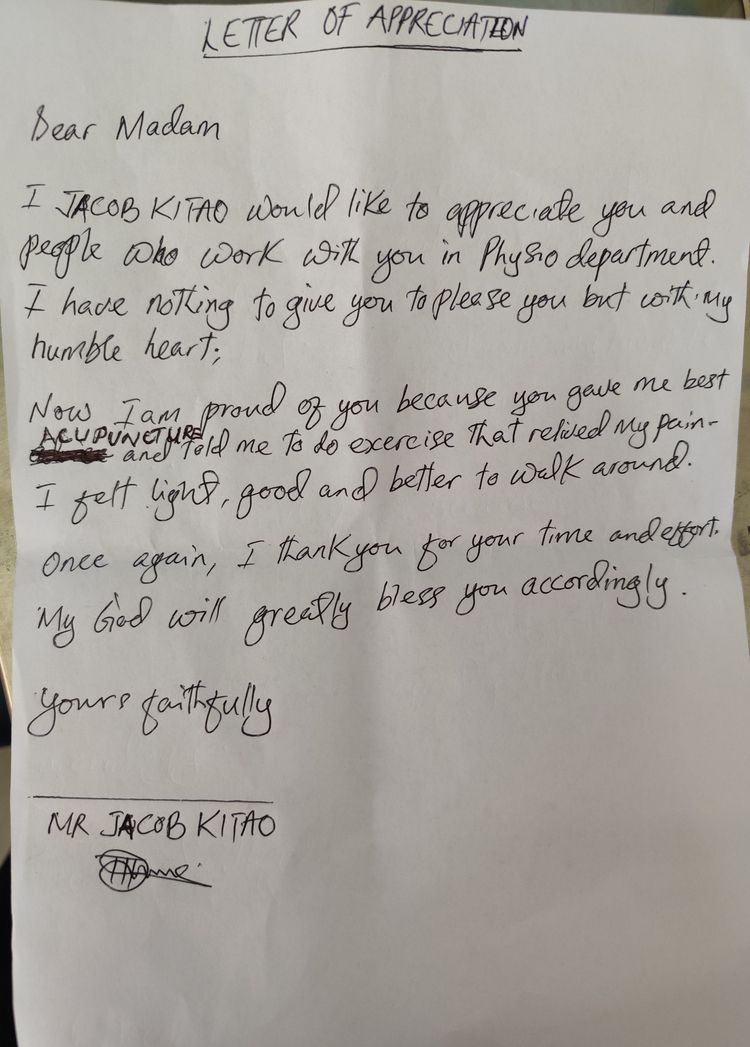 LETTER OF APPRECIATION
Dear Madam
I JACOB KITAO would like to appreciate you and
people who work with you in Physio department.
I have nothing to give you to please you but with my
humble heart;
Now I am proud of you because you gave me best
ACUPUNCTURE
and told me to do exercise that relived my pain-
I felt light, good and better to walk around.
Once again, I thank you for your time and effort.
My God will greatly bless you accordingly.
Yours faithfully
MR JACOB KITAO